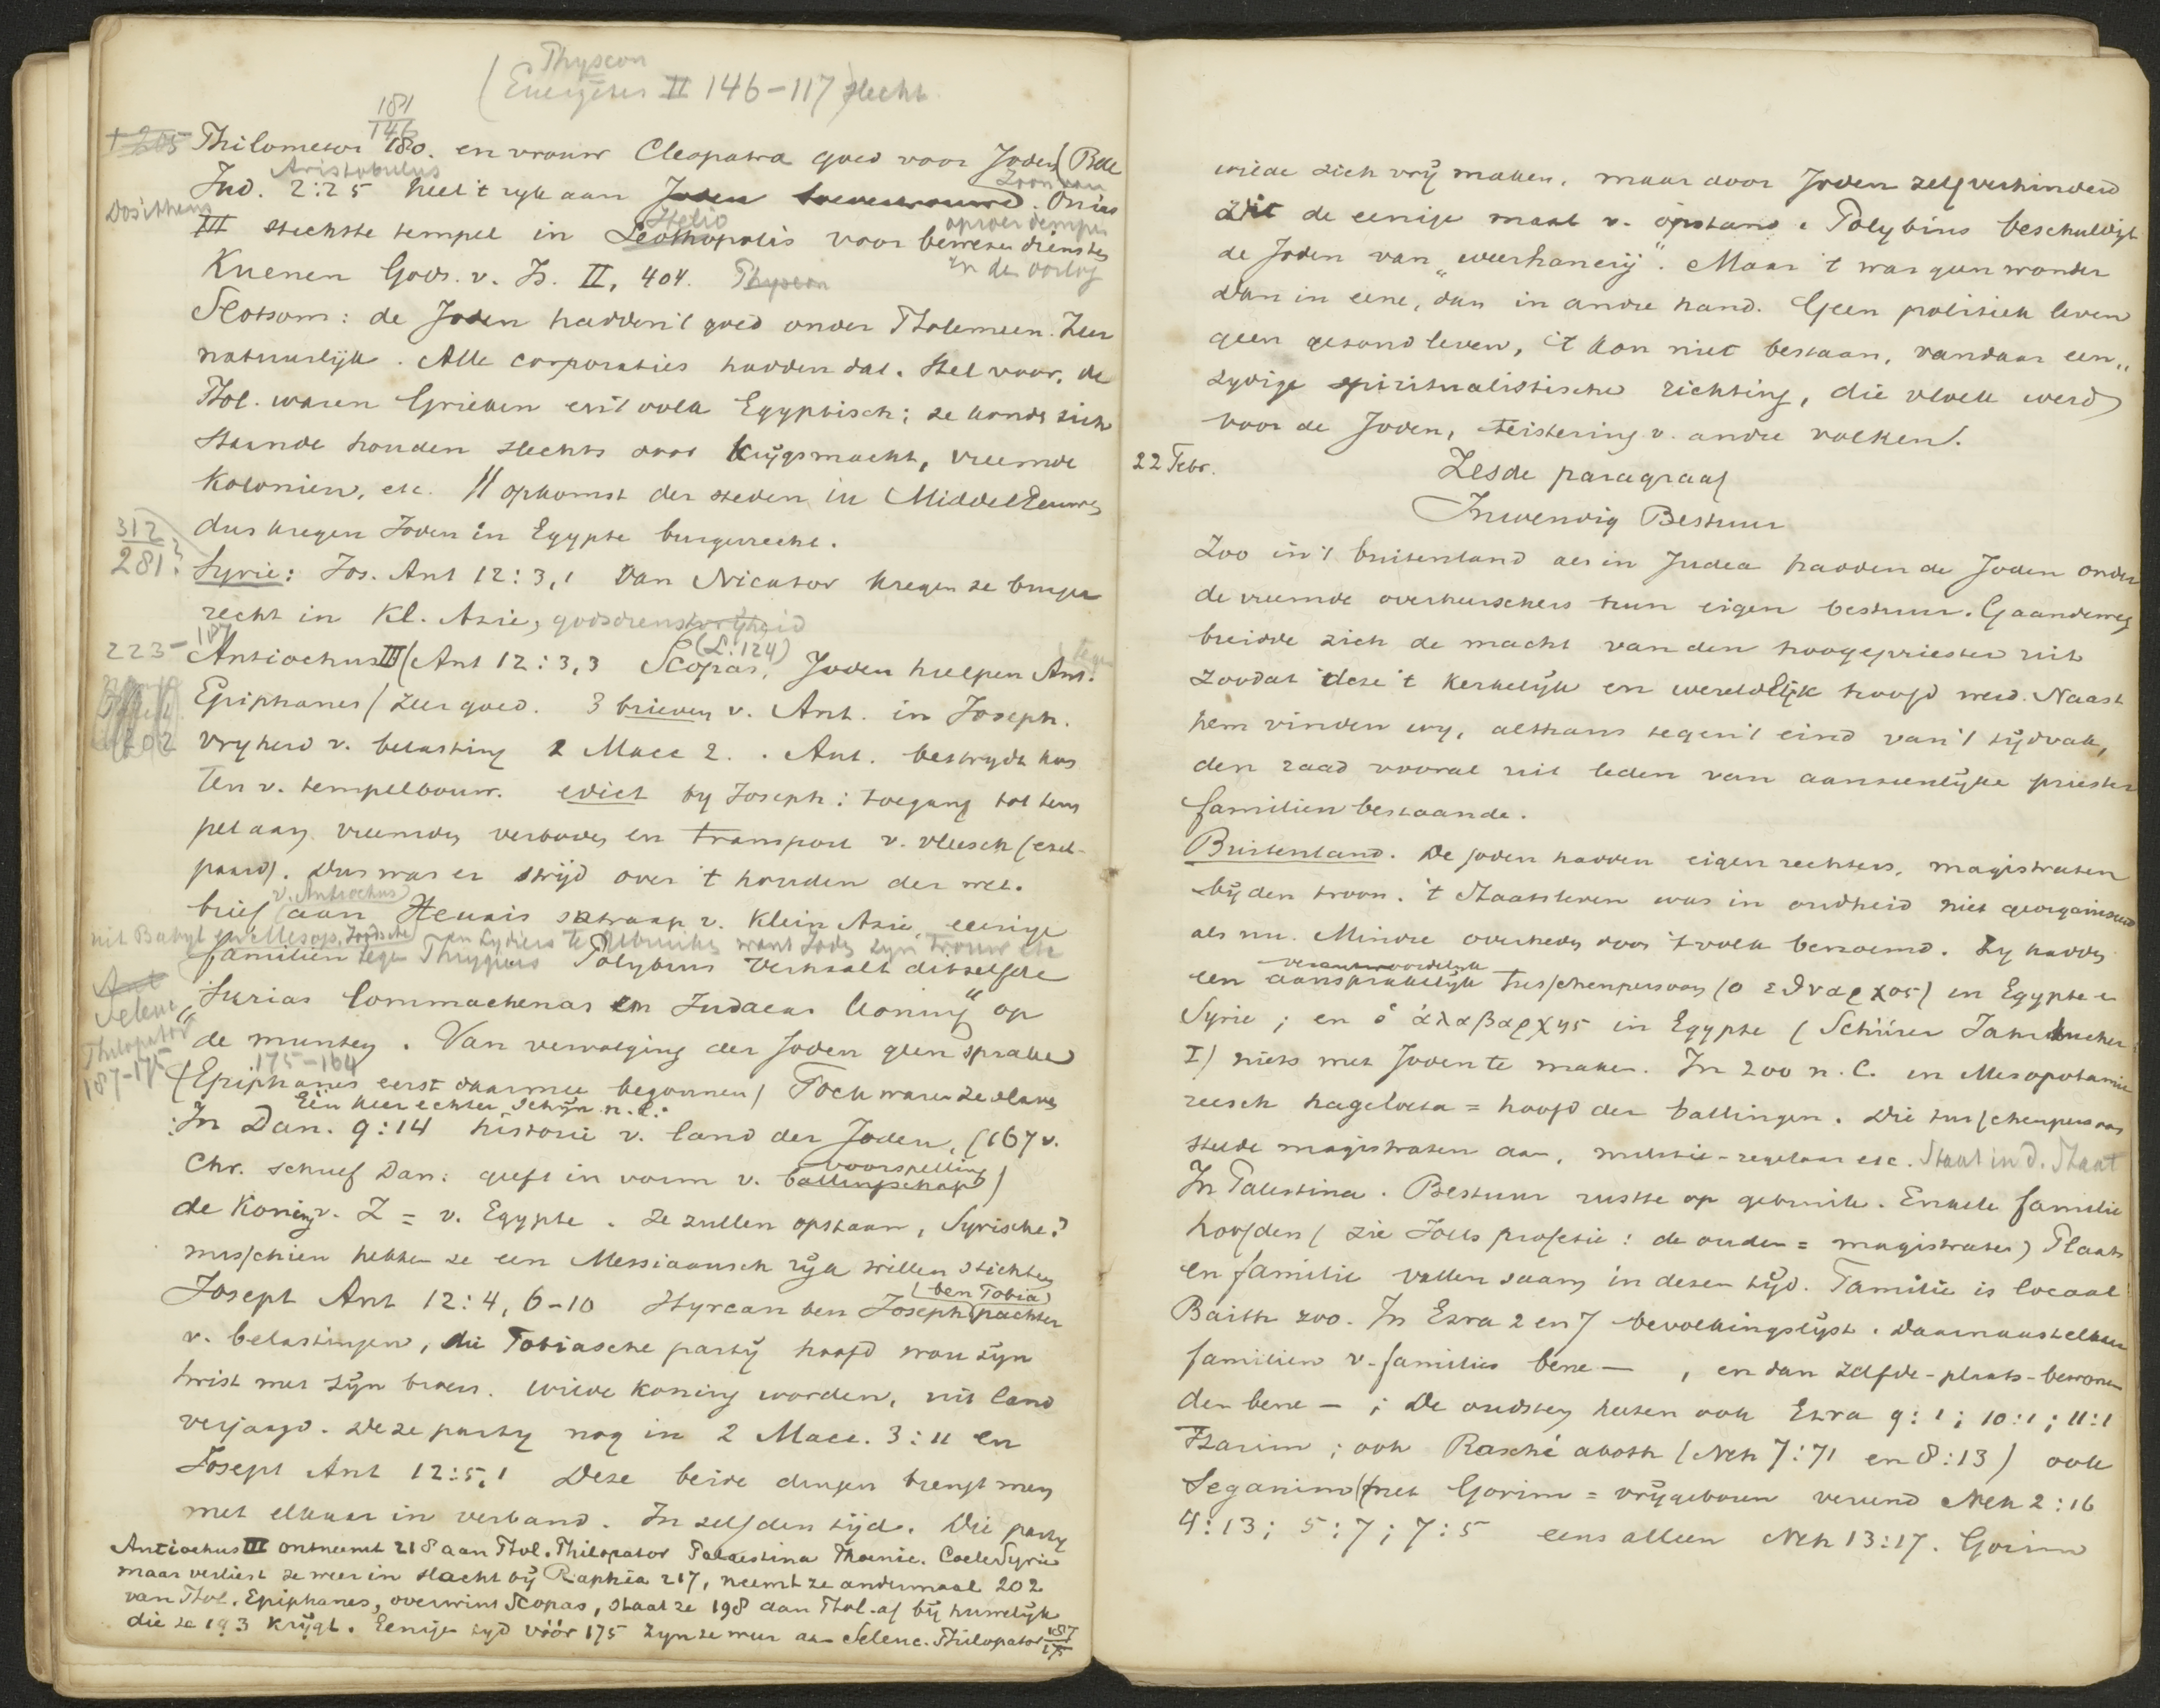 Physcon
(Euergetes II 146-117) slecht
181
146
† 205 Philometor 180. en vrouw Cleopatra goed voor Joden (Bell
Aristobulus
Jud. 2:25 heel 't ryk aan Joden toevertrouwd. Onias
Zoon van
Dositheus
III stichtte tempel in Leothopolis voor bewezen diensten
Helio
oproer dempen
in den oorlog
Kuenen Godsd. v. Is. II, 404. Physcon
Slotsom: de Joden hadden 't goed onder Ptolemeen. Zeer
natuurlijk. Alle corporaties hadden dat. Stel voor, de
Ptol. waren Grieken en 't volk Egyptisch; ze konden zich
staande houden slechts door krijgsmacht, vreemde
kolonien, etc. // opkomst der steden in MiddelEeuwen
dus kregen Joden in Egypte burgerrecht.
312
281?
Syrie: Jos. Ant 12:3,1 Van Nicator kregen ze burger
recht in Kl. Azie, godsdienstvrijheid
223-187
Antiochus III (Ant 12:3,3 Scopas, Joden hielpen Ant. tegen
(L:124)
Epiphanes) zeer goed. 3 brieven v. Ant. in Joseph.
202
vryheid v. belasting 2 Macc 2. . Ant. bestrydt kos
ten v. tempelbouw. edict by Joseph: toegang tot tem
pel aan vreemden verboden en transport v. vleesch (ezel-
paard). Dus was er strijd over 't houden der wet.
brief (v. Antiochus) aan Zeuxis satraap v. Klein Azie, eenige
uit Babyl en Mesop. Joodsche
familien tegen Phrygiers en Lydiers te gebruiken want Joden zyn trouw etc
Polybius verhaalt ditzelfde
Ant
Seleuc
Philopator
187-175
„Surias Commachenas en Judaeas koning" op
de munten. Van vervolging der Joden geen sprake
175-164
(Epiphanes eerst daarmee begonnen) Toch waren ze slaven
Eén keer echter schijn n.l.:
In Dan. 9:14 historie v. land der Joden, (167 v.
Chr. schreef Dan: geeft in vorm v. ballingschap)
voorspelling
de koning v. Z = v. Egypte. Ze zullen opstaan, Syrische?
misschien hebben ze een Messiaansch rijk willen stichten
Joseph Ant 12:4, 6-10 Hyrcan ben Joseph (ben Tobia) pachter
v. belastingen, die Tobiasche partij hoofd wou zijn
twist met zijn broers. wilde koning worden, uit land
verjaagd. Deze party nog in 2 Macc. 3:11 en
Joseph Ant 12:5,1 Deze beide dingen brengt men
met elkaar in verband. In zelfden tijd. Die party
Antiochus III ontneemt 218 aan Ptol. Philopator Palaestina Phoenic. CoeleSyrie
maar verliest ze weer in slacht bij Raphia 217, neemt ze andermaal 202
van Ptol. Epiphanes, overwint Scopas, staat ze 198 aan Ptol. af bij huwelijk
die ze 193 krijgt. Eenige tyd vóór 175 zyn ze weer aan Seleuc. Philopator 187
175
wilde zich vrij maken, maar door Joden zelf verhinderd
Dit de eenige maal v. opstand. Polybius beschuldigt
de Joden van „weerhanerij". Maar 't was geen wonder
dan in eene, dan in andre hand. Geen politiek leven
geen gezond leven, 't kon niet bestaan, vandaar een„
zydige spiritualistische richting, die vloek werd
voor de Joden, teistering v. andre volken.
22 Febr.
Zesde paragraaf
Inwendig Bestuur
Zoo in 't buitenland als in Judea hadden de Joden onder
de vreemde overheerschers hun eigen bestuur. Gaandeweg
breidde zich de macht van den hoogepriester uit
zoodat deze 't kerkelijk en wereldlijk hoofd werd. Naast
hem vinden wy, althans tegen 't eind van 't tijdvak,
den raad vooral uit leden van aanzienlijke priester
familien bestaande.
Buitenland. De Joden hadden eigen rechters, magistraten
bij den troon. 't Staatsleven was in oudheid niet georganiseerd
als nu. Mindre overheden door 't volk benoemd. Zy hadden
verantwoordelijk
een aansprakelijk tusschenpersoon (ο εθναρχος) in Egypte en
Syrie; en ὁ ἀλαβαρχης in Egypte (Schürer Jahrbucher
I) niets met Joden te maken. In 200 n. C. in Mesopotamie
reesch hageloeta = hoofd der ballingen. Die tusschenpersoon
stelde magistraten aan, militie-regelaar etc. Staat in d. Staat
In Palestina. Bestuur rustte op gebruik. Enkele familie
hoofden (zie Joels profetie: de ouden = magistraten) Plaats
en familie vallen saam in dezen tijd. Familie is locaal
Baith zoo. In Ezra 2 en 7 bevolkingslijst. Daarnaast elkaar
familien v. families bene — , en dan zelfde-plaats-bewonen
den bene — ; De oudsten heeten ook Ezra 9:1; 10:1; 11:1
Tsarim; ook Rasché aboth (Neh 7:71 en 8:13) ook
Seganim (met Gorim = vrijgeboren vereend Neh 2:16
4:13; 5:7; 7:5 eens alleen Neh 13:17. Gorim